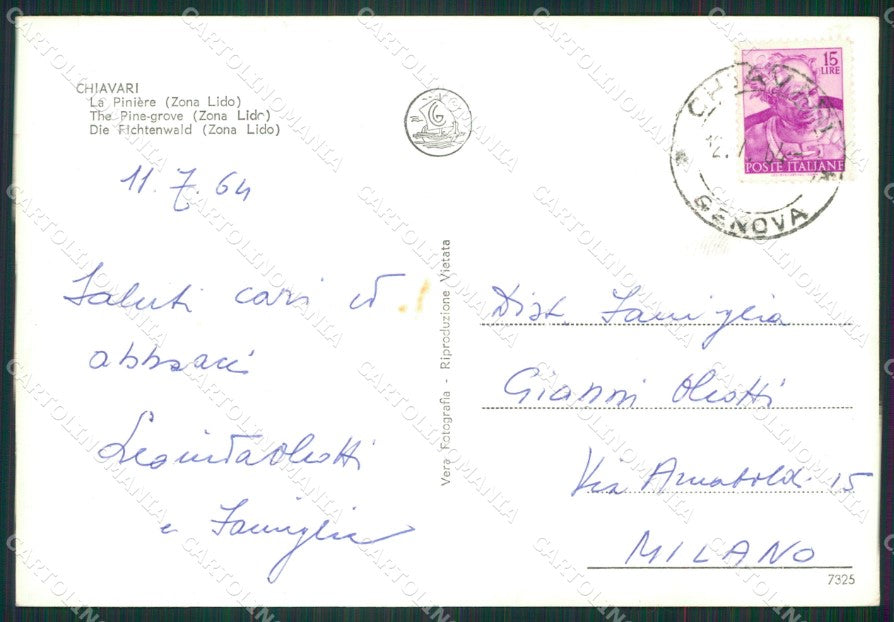 CHIAVARI
La Pinière (Zona Lido)
The Pine-grove (Zona Lido)
Die Fichtenwald (Zona Lido)
11.7.64
Saluti cari ed
abbracci
e Famiglia
Vera Fotografia - Riproduzione Vietata
15
LIRE
POSTE ITALIANE
CHIAVARI
GENOVA
Dist. Famiglia
Gianni Olcotti
Via Arnaboldi 15
MILANO
7325
CARTOLINOMANIA